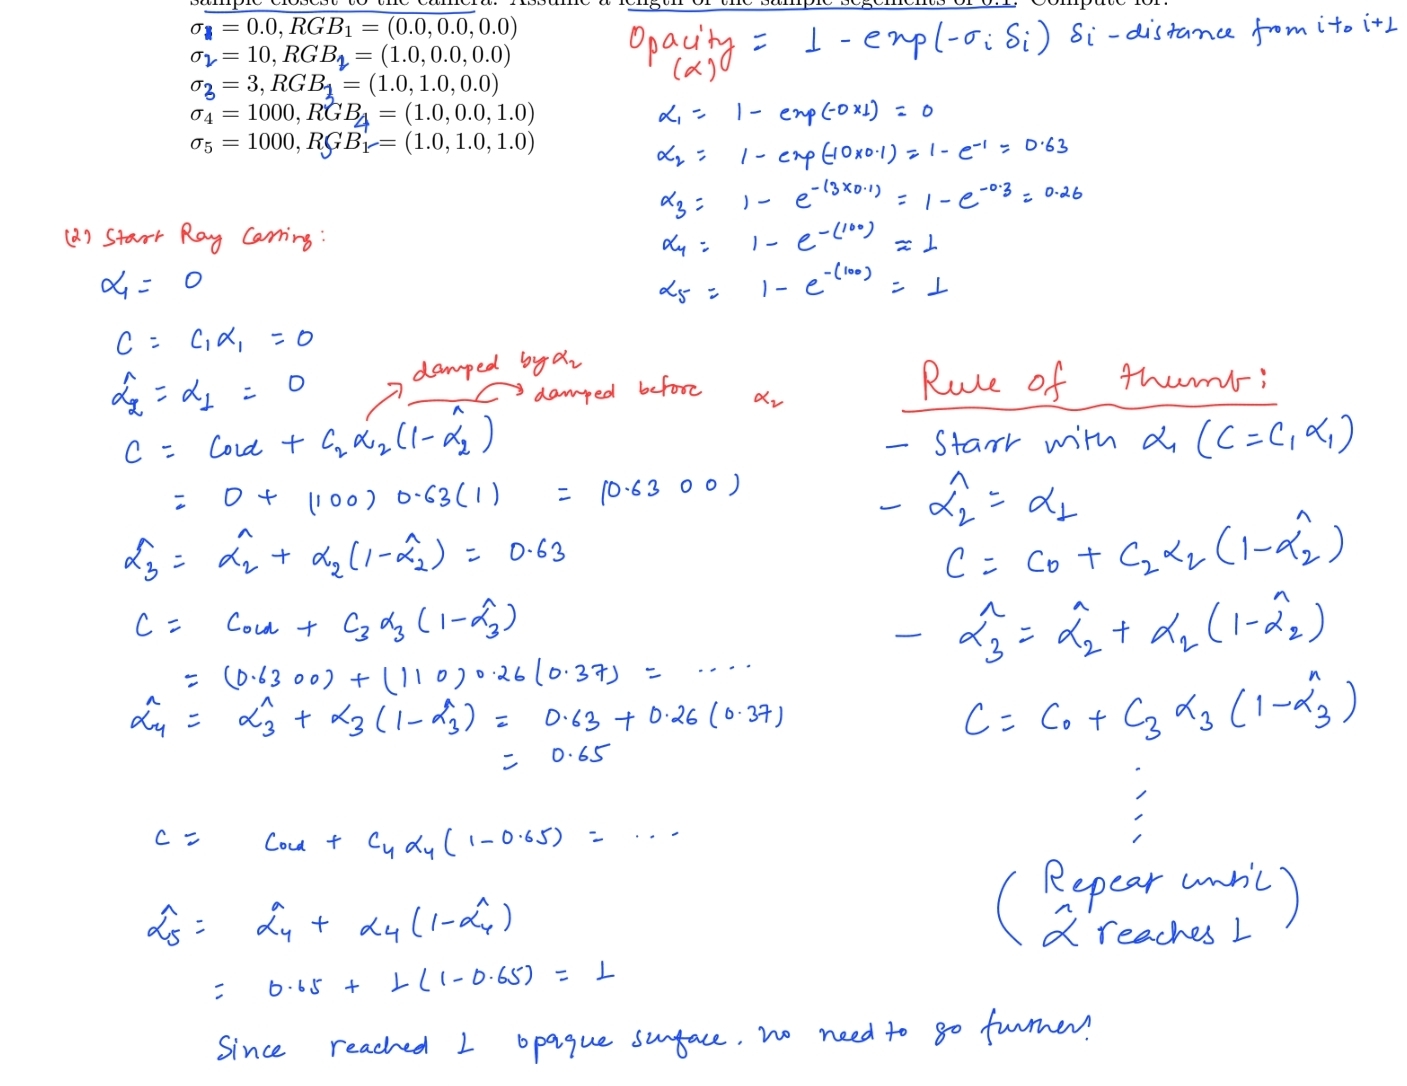 sample closest to the camera. Assume a length of the sample segements of 0.1. Compute for:
σ1 = 0.0, RGB1 = (0.0, 0.0, 0.0)
σ2 = 10, RGB2 = (1.0, 0.0, 0.0)
σ3 = 3, RGB3 = (1.0, 1.0, 0.0)
σ4 = 1000, RGB4 = (1.0, 0.0, 1.0)
σ5 = 1000, RGB5 = (1.0, 1.0, 1.0)
Opacity (α) = 1 - exp(-σi δi) δi - distance from i to i+1
α1 = 1 - exp(-0x1) = 0
α2 = 1 - exp(-10x0.1) = 1 - e^-1 = 0.63
α3 = 1 - e^-(3x0.1) = 1 - e^-0.3 = 0.26
α4 = 1 - e^-(100) ≈ 1
α5 = 1 - e^-(100) = 1
(2) Start Ray Casting:
α1 = 0
C = C1α1 = 0
α̂2 = α1 = 0
damped by α2
damped before α2
C = Cold + C2 α2 (1-α̂2)
= 0 + (1 0 0) 0.63(1) = (0.63 0 0)
α̂3 = α̂2 + α2(1-α̂2) = 0.63
C = Cold + C3 α3 (1-α̂3)
= (0.63 0 0) + (1 1 0) 0.26(0.37) = ....
α̂4 = α̂3 + α3(1-α̂3) = 0.63 + 0.26(0.37)
= 0.65
C = Cold + C4 α4 (1-0.65) = ...
α̂5 = α̂4 + α4(1-α̂4)
= 0.65 + 1(1-0.65) = 1
Since reached 1 opaque surface. no need to go further!
Rule of thumb:
- Start with α1 (C=C1α1)
- α̂2 = α1
C = C0 + C2α2(1-α̂2)
- α̂3 = α̂2 + α2(1-α̂2)
C = C0 + C3 α3 (1-α̂3)
(Repeat until
α̂ reaches 1)